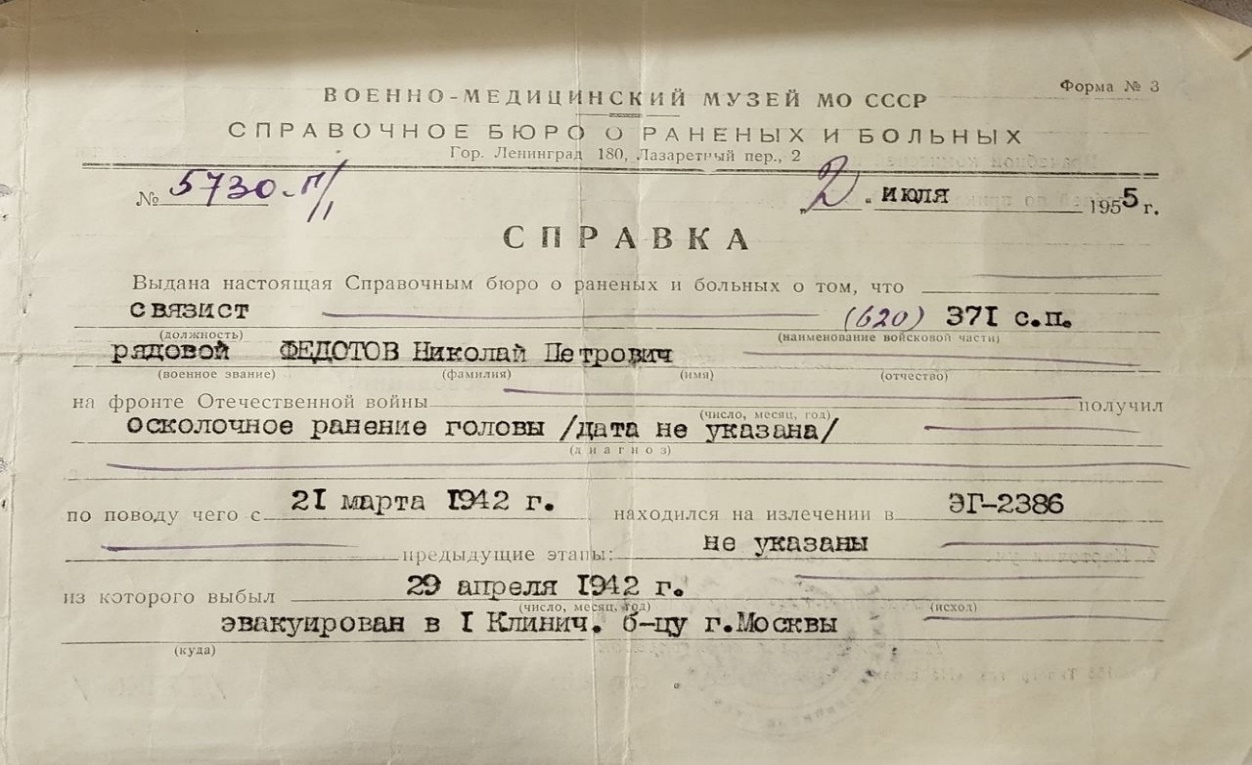 Форма № 3
ВОЕННО-МЕДИЦИНСКИЙ МУЗЕЙ МО СССР
СПРАВОЧНОЕ БЮРО О РАНЕНЫХ И БОЛЬНЫХ
Гор. Ленинград 180, Лазаретный пер., 2
№ 5730-П/1 „2". июля 1955 г.
СПРАВКА
Выдана настоящая Справочным бюро о раненых и больных о том, что
связист (620) 37I с.п.
(должность) (наименование войсковой части)
рядовой ФЕДОТОВ Николай Петрович
(военное звание) (фамилия) (имя) (отчество)
на фронте Отечественной войны получил
(число, месяц, год)
осколочное ранение головы /дата не указана/
(диагноз)
по поводу чего с 2I марта I942 г. находился на излечении в ЭГ-2386
предыдущие этапы: не указаны
из которого выбыл 29 апреля I942 г.
(число, месяц, год) (исход)
эвакуирован в I Клинич. б-цу г.Москвы
(куда)